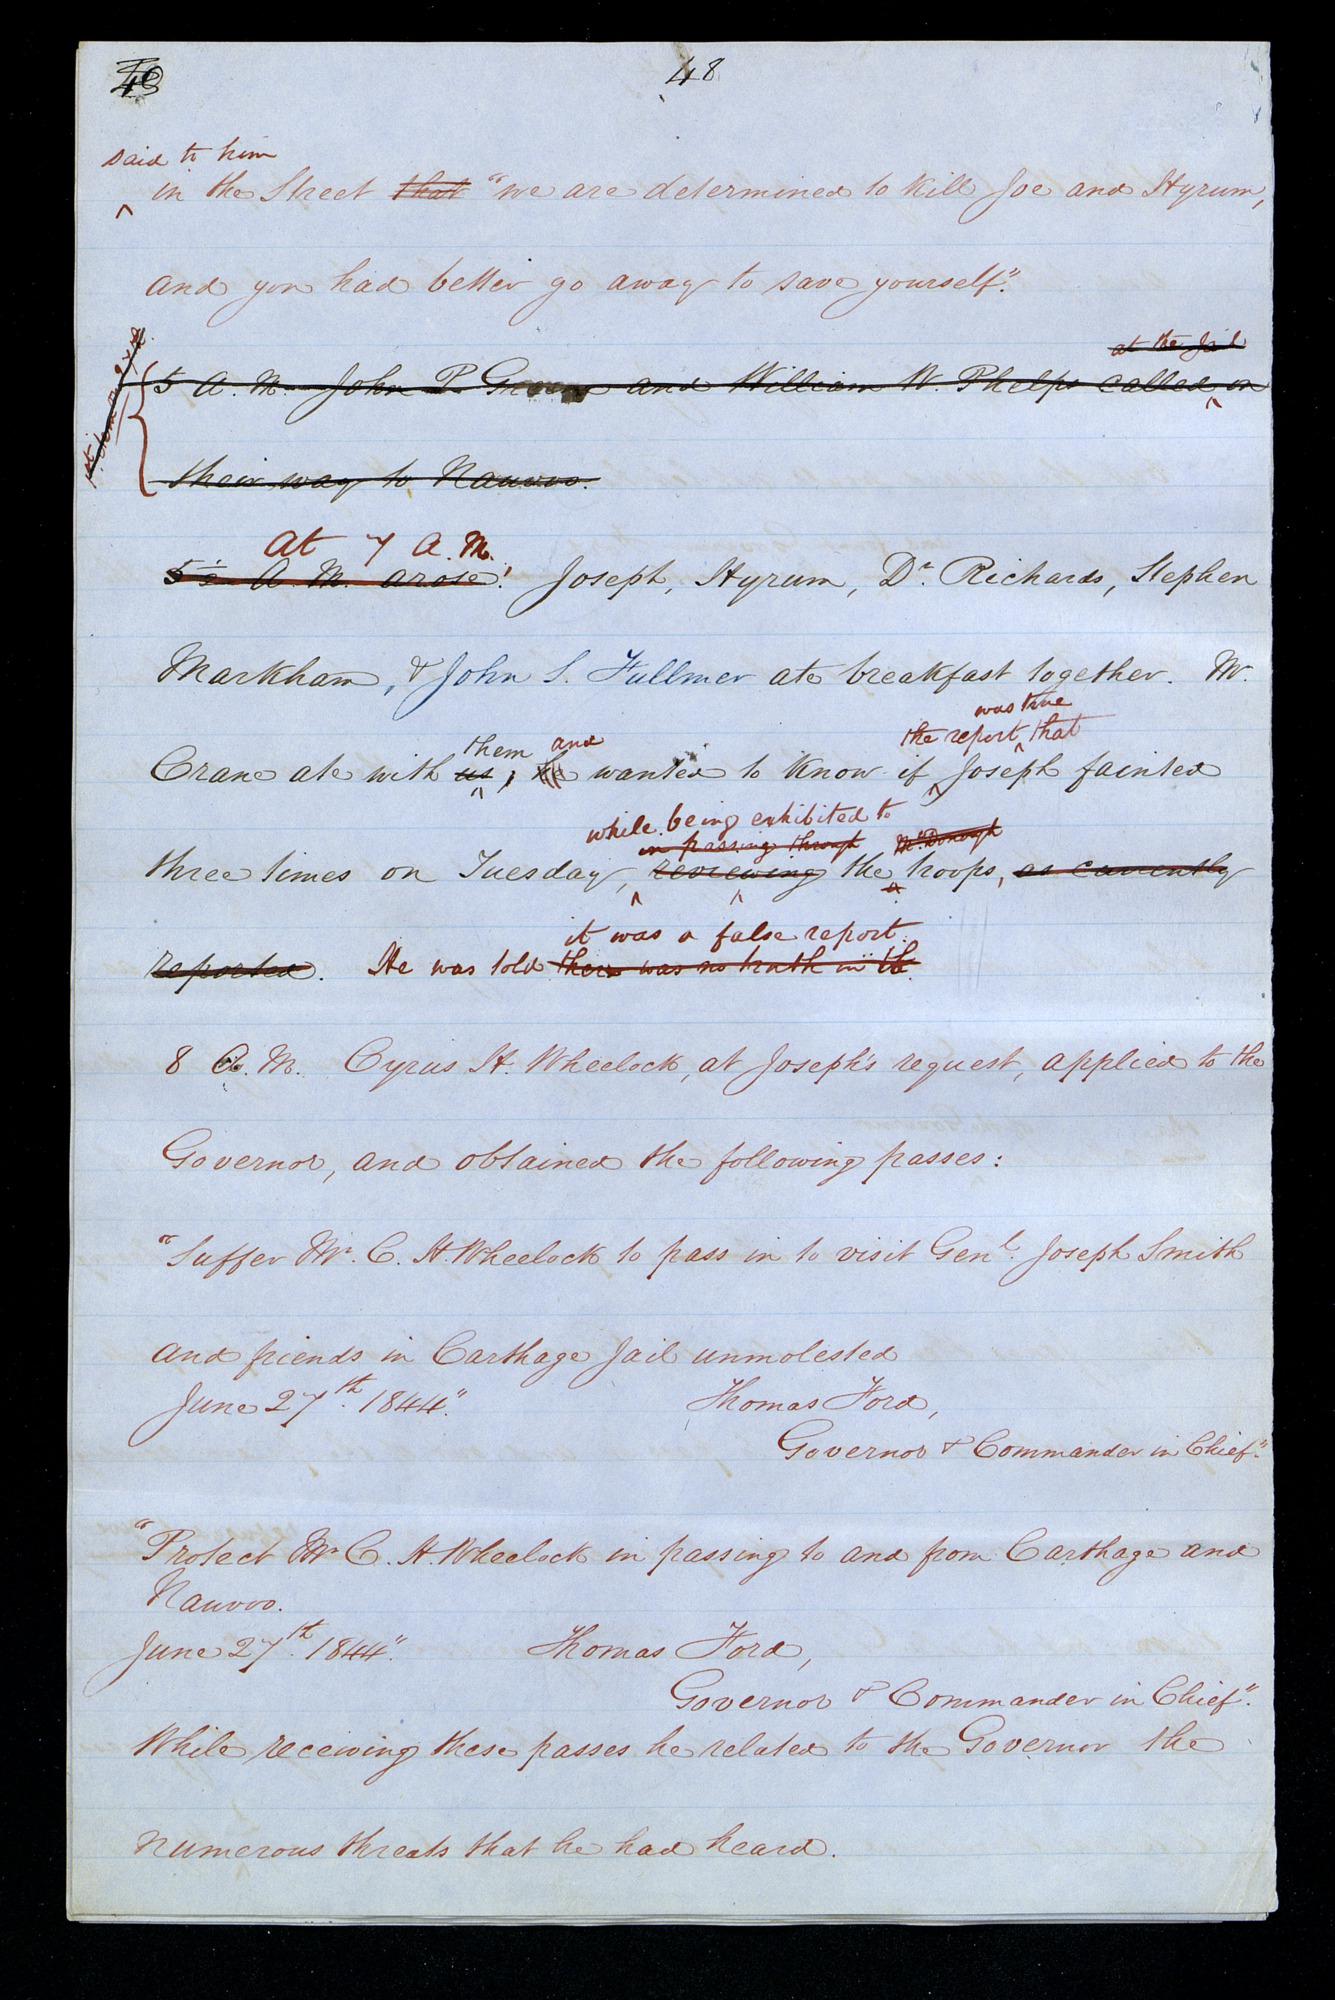 48
said to him
in the Street that "we are determined to kill Joe and Hyrum,
and you had better go away to save yourself."
at the Jail
5 A. M. John P Greene and William W. Phelps called in
their way to Nauvoo.
At 7 A. M.
5 30 A M. arose. Joseph, Hyrum, Dr. Richards, Stephen
Markham, & John S. Fullmer ate breakfast together. Mr.
was true
them and the report that
Crane ate with us, he wanted to know if Joseph fainted
while being exhibited to
in passing through McDonough
three times on Tuesday, reviewing the troops, as currently
it was a false report.
reported. He was told there was no truth in it.
8 A. M. Cyrus H. Wheelock, at Joseph's request, applied to the
Governor, and obtained the following passes:
"Suffer Mr. C. H. Wheelock to pass in to visit Genl. Joseph Smith
and friends in Carthage Jail unmolested
June 27th. 1844." Thomas Ford,
Governor & Commander in Chief."
"Protect Mr C. H. Wheelock in passing to and from Carthage and
Nauvoo.
June 27th. 1844." Thomas Ford,
Governor & Commander in Chief."
While receiving these passes he related to the Governor the
numerous threats that he had heard.